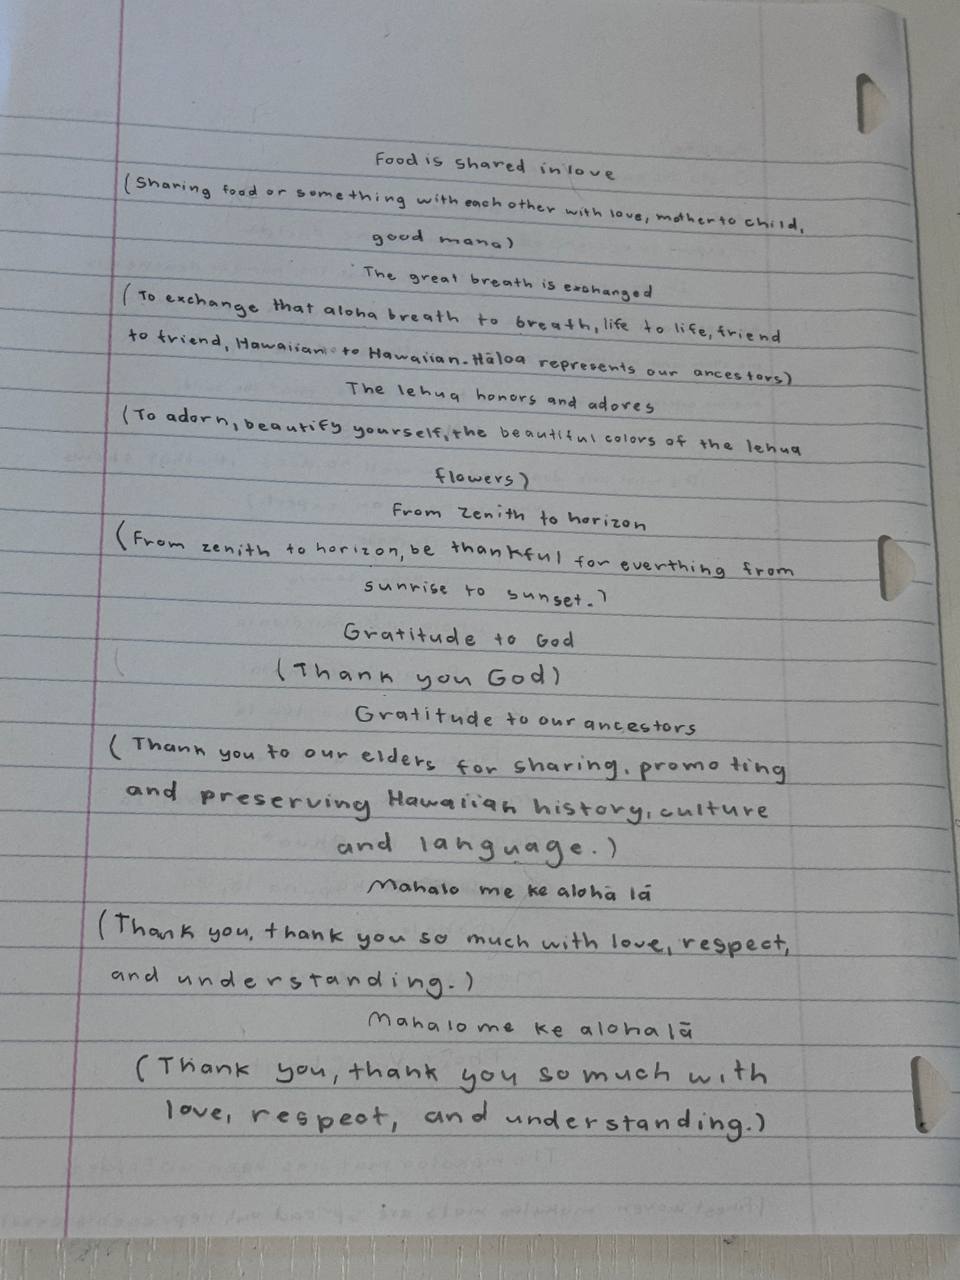 Food is shared in love
(Sharing food or something with each other with love, mother to child,
good mana)
The great breath is exchanged
(To exchange that aloha breath to breath, life to life, friend
to friend, Hawaiian to Hawaiian. Hāloa represents our ancestors)
The lehua honors and adores
(To adorn, beautify yourself, the beautiful colors of the lehua
flowers)
From zenith to horizon
(From zenith to horizon, be thankful for everthing from
sunrise to sunset.)
Gratitude to God
(Thank you God)
Gratitude to our ancestors
(Thank you to our elders for sharing, promoting
and preserving Hawaiian history, culture
and language.)
Mahalo me ke aloha lā
(Thank you, thank you so much with love, respect,
and understanding.)
Mahalo me ke aloha lā
(Thank you, thank you so much with
love, respect, and understanding.)